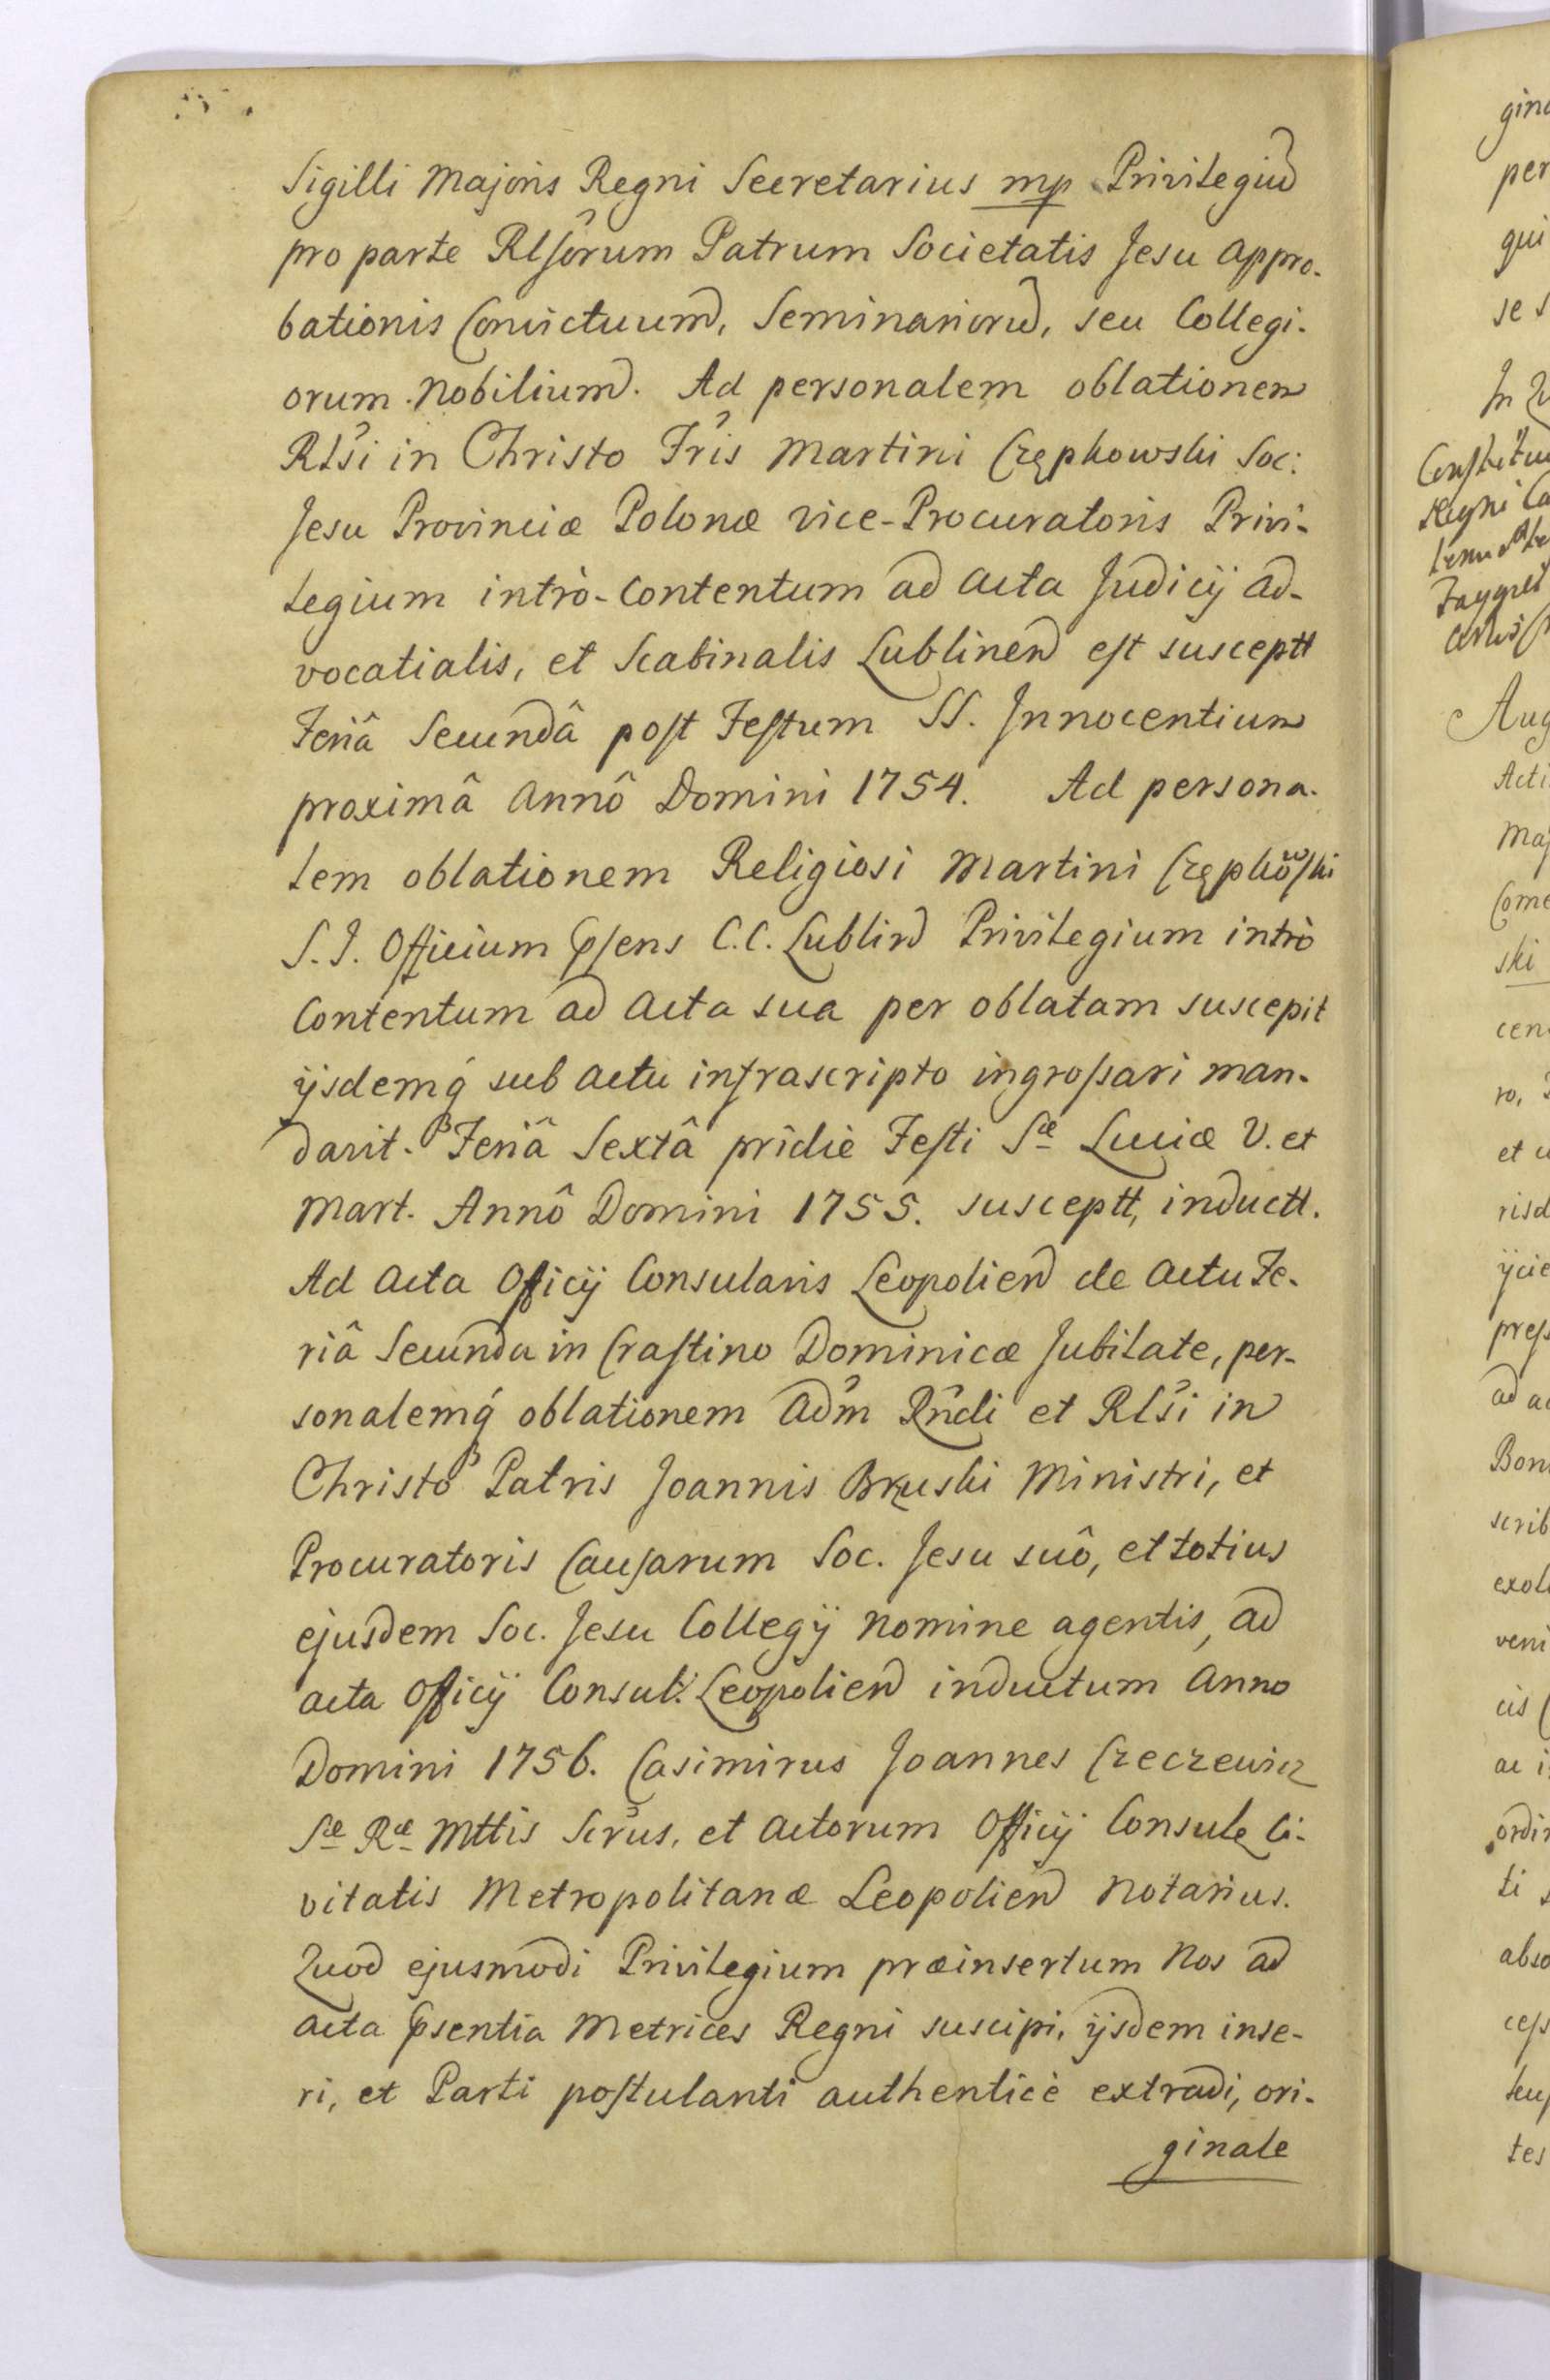 Sigilli Majoris Regni Secretarius mp Privilegiū
pro parte Rlsorum Patrum Societatis Jesu Appro-
bationis Convictuum, Seminariorū, seu Collegi-
orum Nobilium. Ad personalem oblationem
Rlsi in Christo Fris Martini Czępkowski Soc:
Jesu Provinciæ Polonæ vice-Procuratoris Privi-
legium intrò-Contentum ad Acta Judicij Ad-
vocatialis, et Scabinalis Lublinen est susceptt
Feriâ Secundâ post Festum SS. Innocentium
proximâ Annô Domini 1754. Ad persona-
lem oblationem Religiosi Martini Czępkowski
S.J. Officium Psens C.C. Lublin Privilegium intrò
Contentum ad Acta sua per oblatam suscepit
ijsdemq́ sub Actu infrascripto ingrossari man-
davit. Feriâ Sextâ pridiè Festi Sæ Luciæ V. et
Mart. Annô Domini 1755. susceptt, inductt.
Ad Acta Officij Consularis Leopolien de Actu Fe-
riâ Secunda in Crastino Dominicæ Jubilate, per-
sonalemq́ oblationem Adm Rndi et Rlsi in
Christo Patris Joannis Bruski Ministri, et
Procuratoris Causarum Soc. Jesu suô, et totius
ejusdem Soc. Jesu Collegij Nomine agentis, ad
acta Officij Consul: Leopolien inductum Anno
Domini 1756. Casimirus Joannes Czeczewicz
Sæ Ræ Mttis Scrus, et Actorum Officij Consule Ci-
vitatis Metropolitanæ Leopolien Notarius.
Quod ejusmodi Privilegium præinsertum Nos ad
Acta Psentia Metrices Regni suscipi, ijsdem inse-
ri, et Parti postulanti authenticè extradi, ori-
ginale